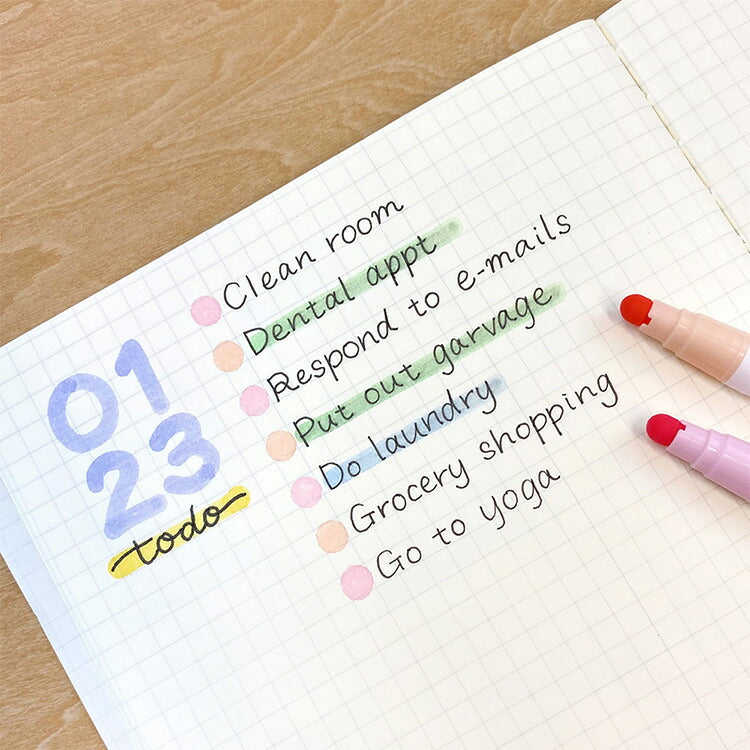 01
23
todo
Clean room
Dental appt
Respond to e-mails
Put out garvage
Do laundry
Grocery shopping
Go to yoga